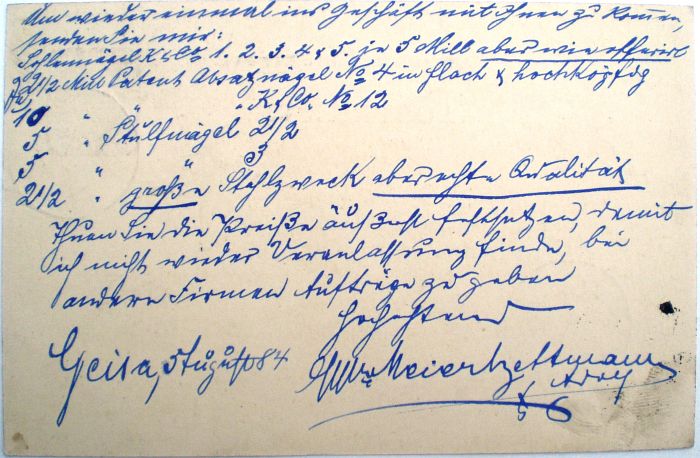 Um wieder einmal ins Geschäft mit Ihnen zu komen,
senden Sie mir:
Sohlennägel K&Co 1. 2. 3. 4 & 5. je 5 Mill aber wie offerirt
2 1/2 Mill Patent Absatznägel No 4 in flach & hochköpfig
10 " " " K&Co. No 12
5 " Stulfnägel 2 1/2
5 " " 3
2 1/2 " große Stahlzweck aber echte Qualität
Thuen Sie die Preiße äußerst festsetzen, damit
ich nicht wieder Veranlassung finde, bei
andere Firmen Aufträge zu geben
Hochachtend
Geisa, 5 August 84